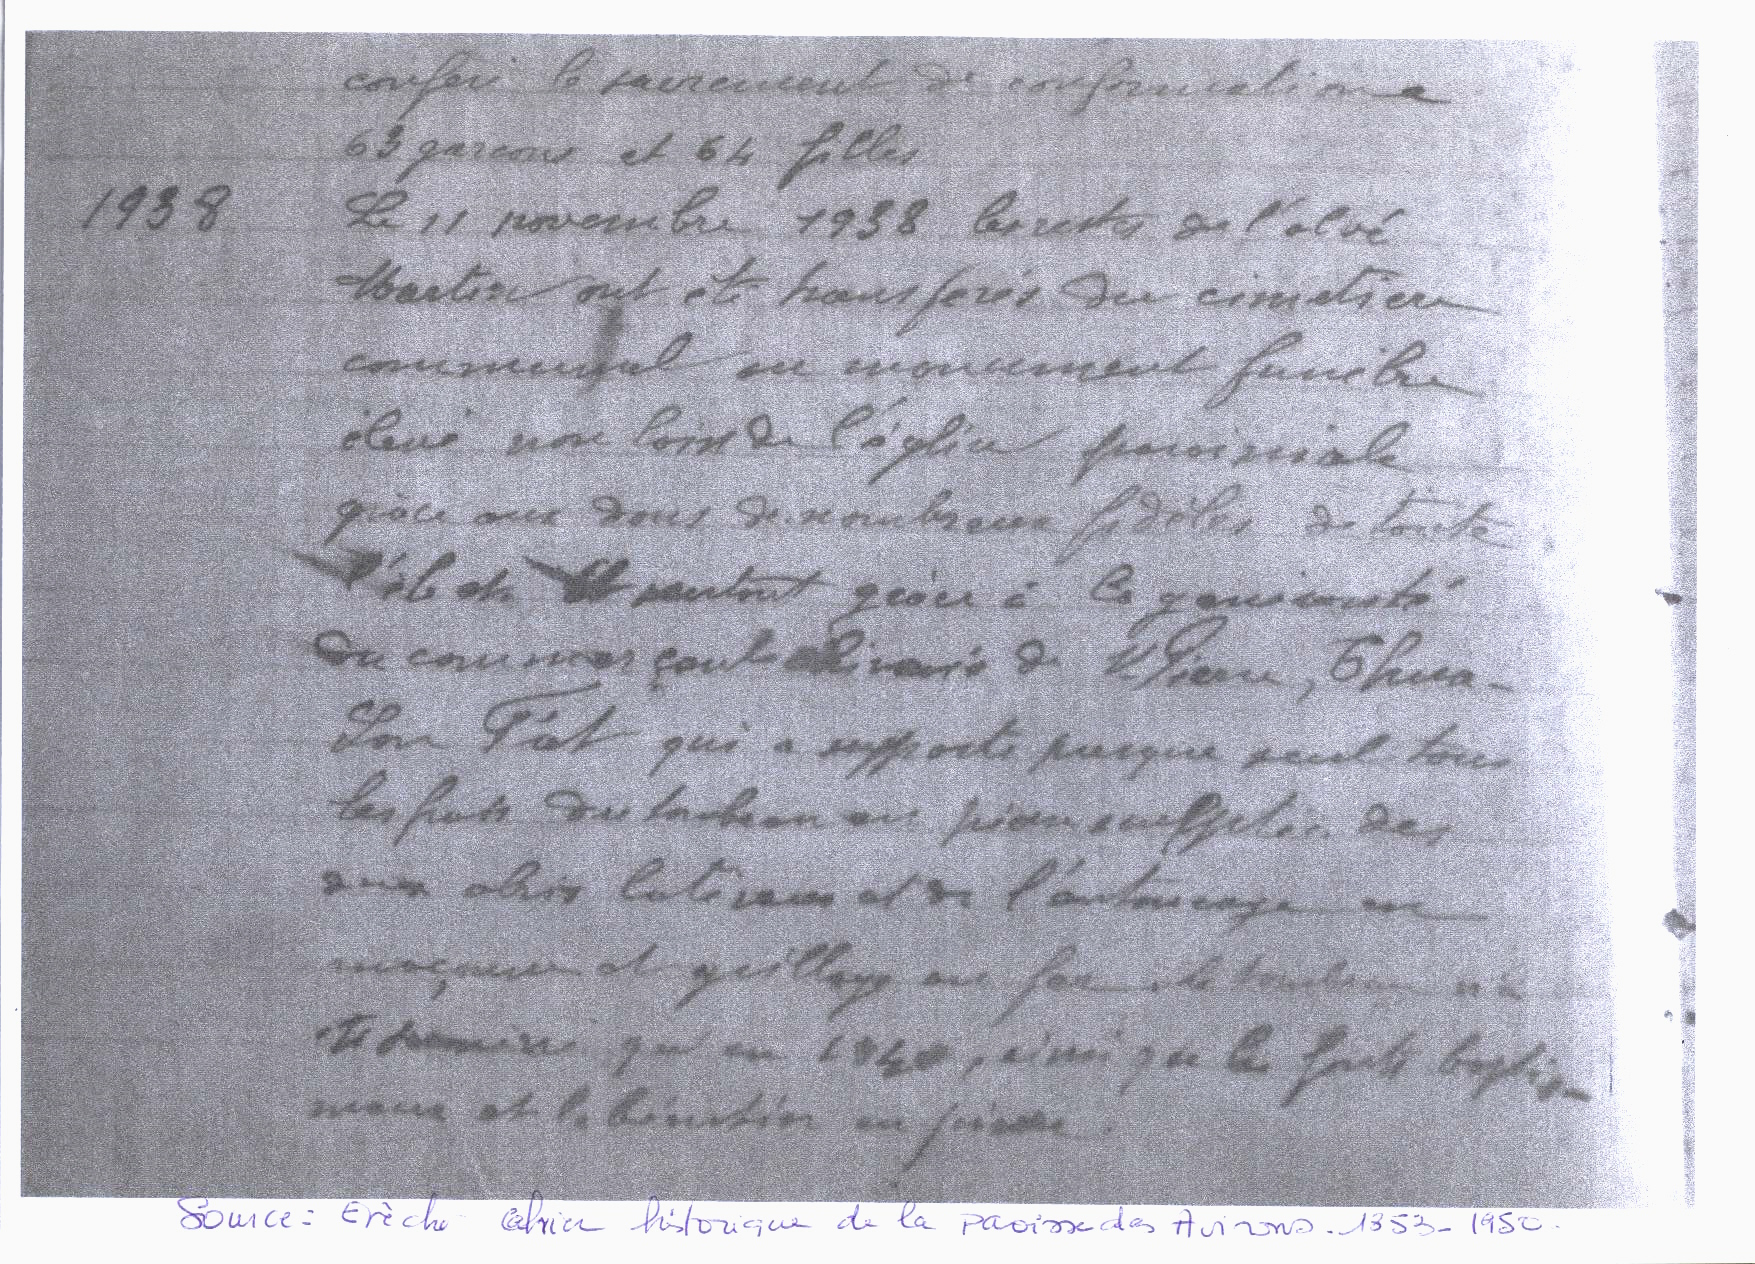 conféré le sacrement de confirmation à
63 garçons et 64 filles
1938 Le 11 novembre 1938 les restes de l'abbé
Martin ont été transférés du cimetière
communal au monument funèbre
élevé non loin de l'église paroissiale
grâce aux dons de nombreux fidèles de toute
l'île et surtout grâce à la générosité
du commerçant chinois de St Pierre, Thua-
Son Fat qui a supporté presque seul tous
les frais du tombeau en pierre des
deux abris latéraux et de l'entourage en
maçonnerie et grillage en fer. Le tombeau n'a
été terminé qu'en 1940, ainsi que les fonts baptis-
maux et le bénitier en pierre.
Source: Evêché Cahier historique de la paroisse des Avirons. 1853-1950.